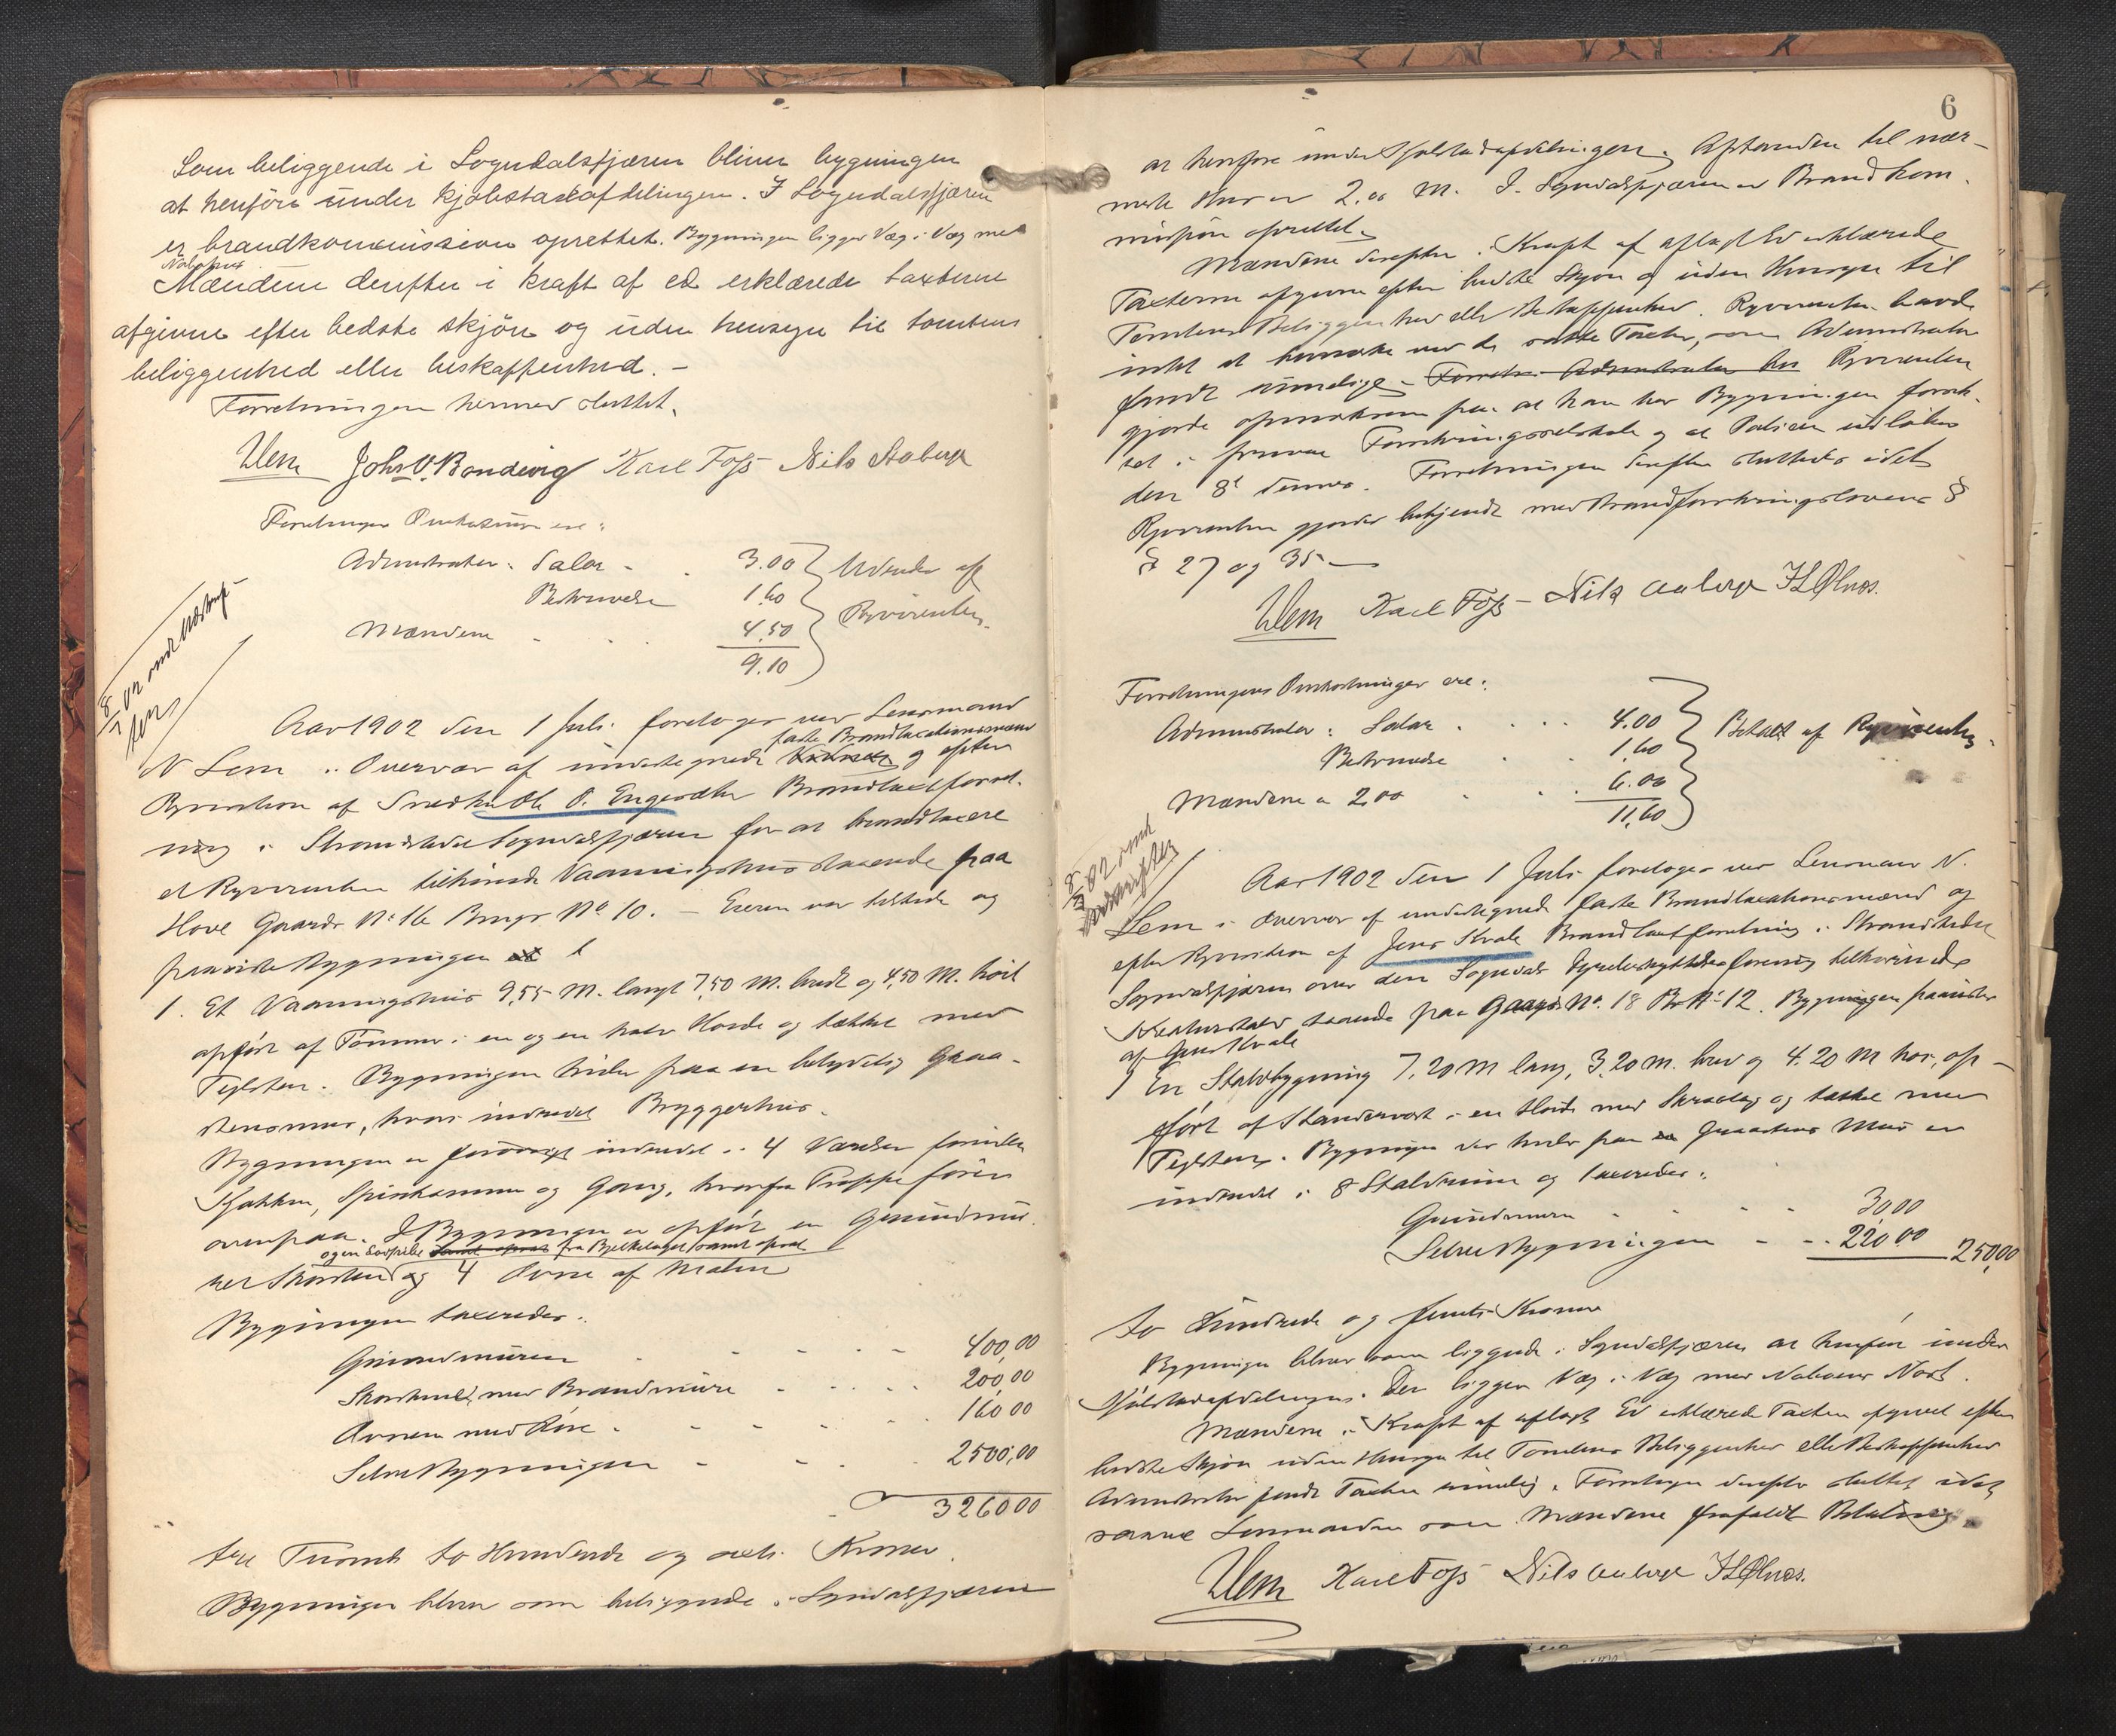 Som beliggende i Sogndalsfjæren bliver bygningen
at henföre under kjøbstadafdelingen. I Sogndalsfjæren
er brandkommission oprettet. Bygningen ligger Væg i Væg med
Nabohus
Mændene derefter i kraft af ed erklærede taxterne
afgivne efter bedste skjön og uden hensyn til tomtens
beliggenhed eller beskaffenhed. –
Forretningen hermed sluttet.
Lem John O. Bondevig Karl Foss Nils Aaberge
Forretningens Omkostninger ere:
Administrator: Salar - 3.00 Udredes af
Beskrivelse 1.60 Rekvirenten.
Mændene - 4.50
9.10
8/7 02 omd
Aar 1902 den 1 Juli foretoges ved Lensmand
faste Brandtaxationsmænd
N Lem i Overvær af undertegnede og efter
Rekvisition af Snedker Ole O. Engesæter Brandtaxtforret-
ning i Strandstedet Sogndalsfjæren for at brandtaxere
et Rekvirenten tilhørende Vaaningshus staaende paa
Hove Gaards No 16 Brugs No 10. – Eieren var tilstede og
paaviste Bygningen
1. Et Vaaningshus 9,55 M. langt 7,50 M. bredt og 4,50 M. höit
opfört af Tømmer i en og en halv Etage og tækket med
Teglsten. Bygningen hviler paa en betydelig Graa-
stensmur, hvori indredet Bryggerhus.
Bygningen er forövrigt indredet i 4 Værelser foruden
Kjøkken, Spiskammer og Gang, hvorfra Trappe fører
ovenpaa. I Bygningen er opfört en Grundmu-
og en Sodpibe fra Bjelkelaget samt opsat
ret Skorsten og 4 Ovne af Malm
Bygningen taxeredes:
Grundmuren - - - 400,00
Skorstenen med Brandmure - - - 200,00
Ovnene med Röre - - - 160 00
Selve Bygningen - - - 2500,00
3260 00
tre Tusinde to Hundrede og seksti Kroner.
Bygningen bliver som beliggende i Sogndalsfjæren
6
at henføre under Kjøbstadafdelingen. Afstanden til nær-
meste Hus er 2.00 M. I Sogndalsfjæren er Brandkom-
mission oprettet.
Mændene derefter i Kraft af aflagt Ed erklærede
Taxterne afgivne efter bedste Skjøn og uden Hensyn til
Tomtens Beliggenhed eller Beskaffenhed. Rekvirenten havde
intet at bemærke ved de satte Taxter, som Administrator
fandt rimelige. Rekvirenten
gjorde opmærksom paa at han har Bygningen forsik-
ret i privat Forsikringsselskab og at Policen udløber
den 8de dennes. Forretningen derefter sluttedes idet
Rekvirenten gjordes bekjendt med Brandforsikringslovens §
§ 27 og 35 –
Lem Karl Foss – Nils Aaberge
Forretningens Omkostninger ere:
Administrator: Salar - - - 4.00 Betalt af Rekvirenten.
Beskrivelse - 1.60
Mændene a 2,00 - - 6.00
11,60
8/7 02 omd
Aar 1902 den 1 Juli foretoges ved Lensmand N.
Lem i Overvær af undertegnede faste Brandtaxationsmænd og
efter Rekvisition af Jens Kvale Brandtaxtforretning i Strandstedet
Sogndalsfjæren over den Sogndals Dyrebeskyttelsesforening tilhørende
staaende paa Gaards No. 18 Br No 12. Bygningen paavistes
af Jens Kvale
1 En Staldbygning 7,20 M lang, 3,20 M. bred og 4.20 M høi, op-
ført af Standerverk i en Etage med Skraatag og tækket med
Teglsten. Bygningen der hviler paa Graastens Mur er
indredet i 8 Staldrum og taxeredes:
Grundmuren - - - 30 00
Selve Bygningen - - - 220 00 250,00
to Hundrede og femti Kroner
Bygningen bliver som liggende i Sogndalsfjæren at henføre under
Kjøbstadafdelingen. Den ligger Væg i Væg med Naboens Nøst.
Mændene i Kraft af aflagt Ed erklærede Taxten afgivet efter
bedste Skjøn uden Hensyn til Tomtens Beliggenhed eller Beskaffenhed
Administrator fandt Taxten rimelig. Forretningen derefter sluttet idet
Lensmanden som Mændene frafaldt Betaling.
Lem Karl Foss Nils Aaberge